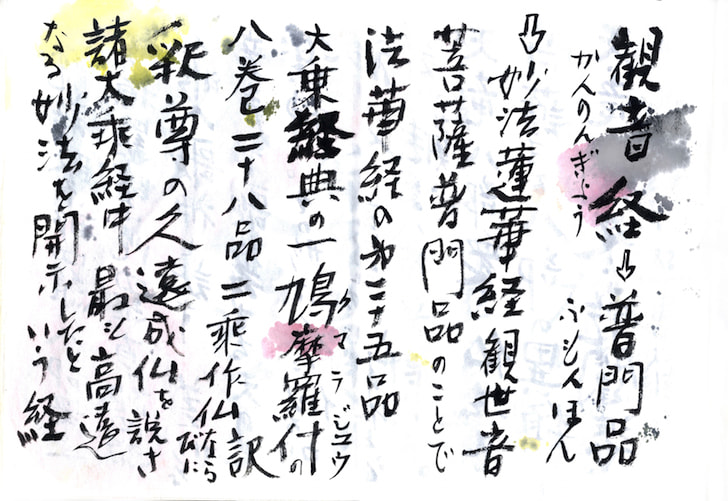 観音経⇩普門品
かんのんぎょう ふもんほん
⇩妙法蓮華経観世音
菩薩普門品のことで
法華経の第二十五品
大乗経典の一 鳩摩羅什の
クマラジュウ
八巻二十八品 二乗作仏 訳
釈尊の久遠成仏を説き
諸大乗経中 最も高遠
なる妙法を開示したと
いう経